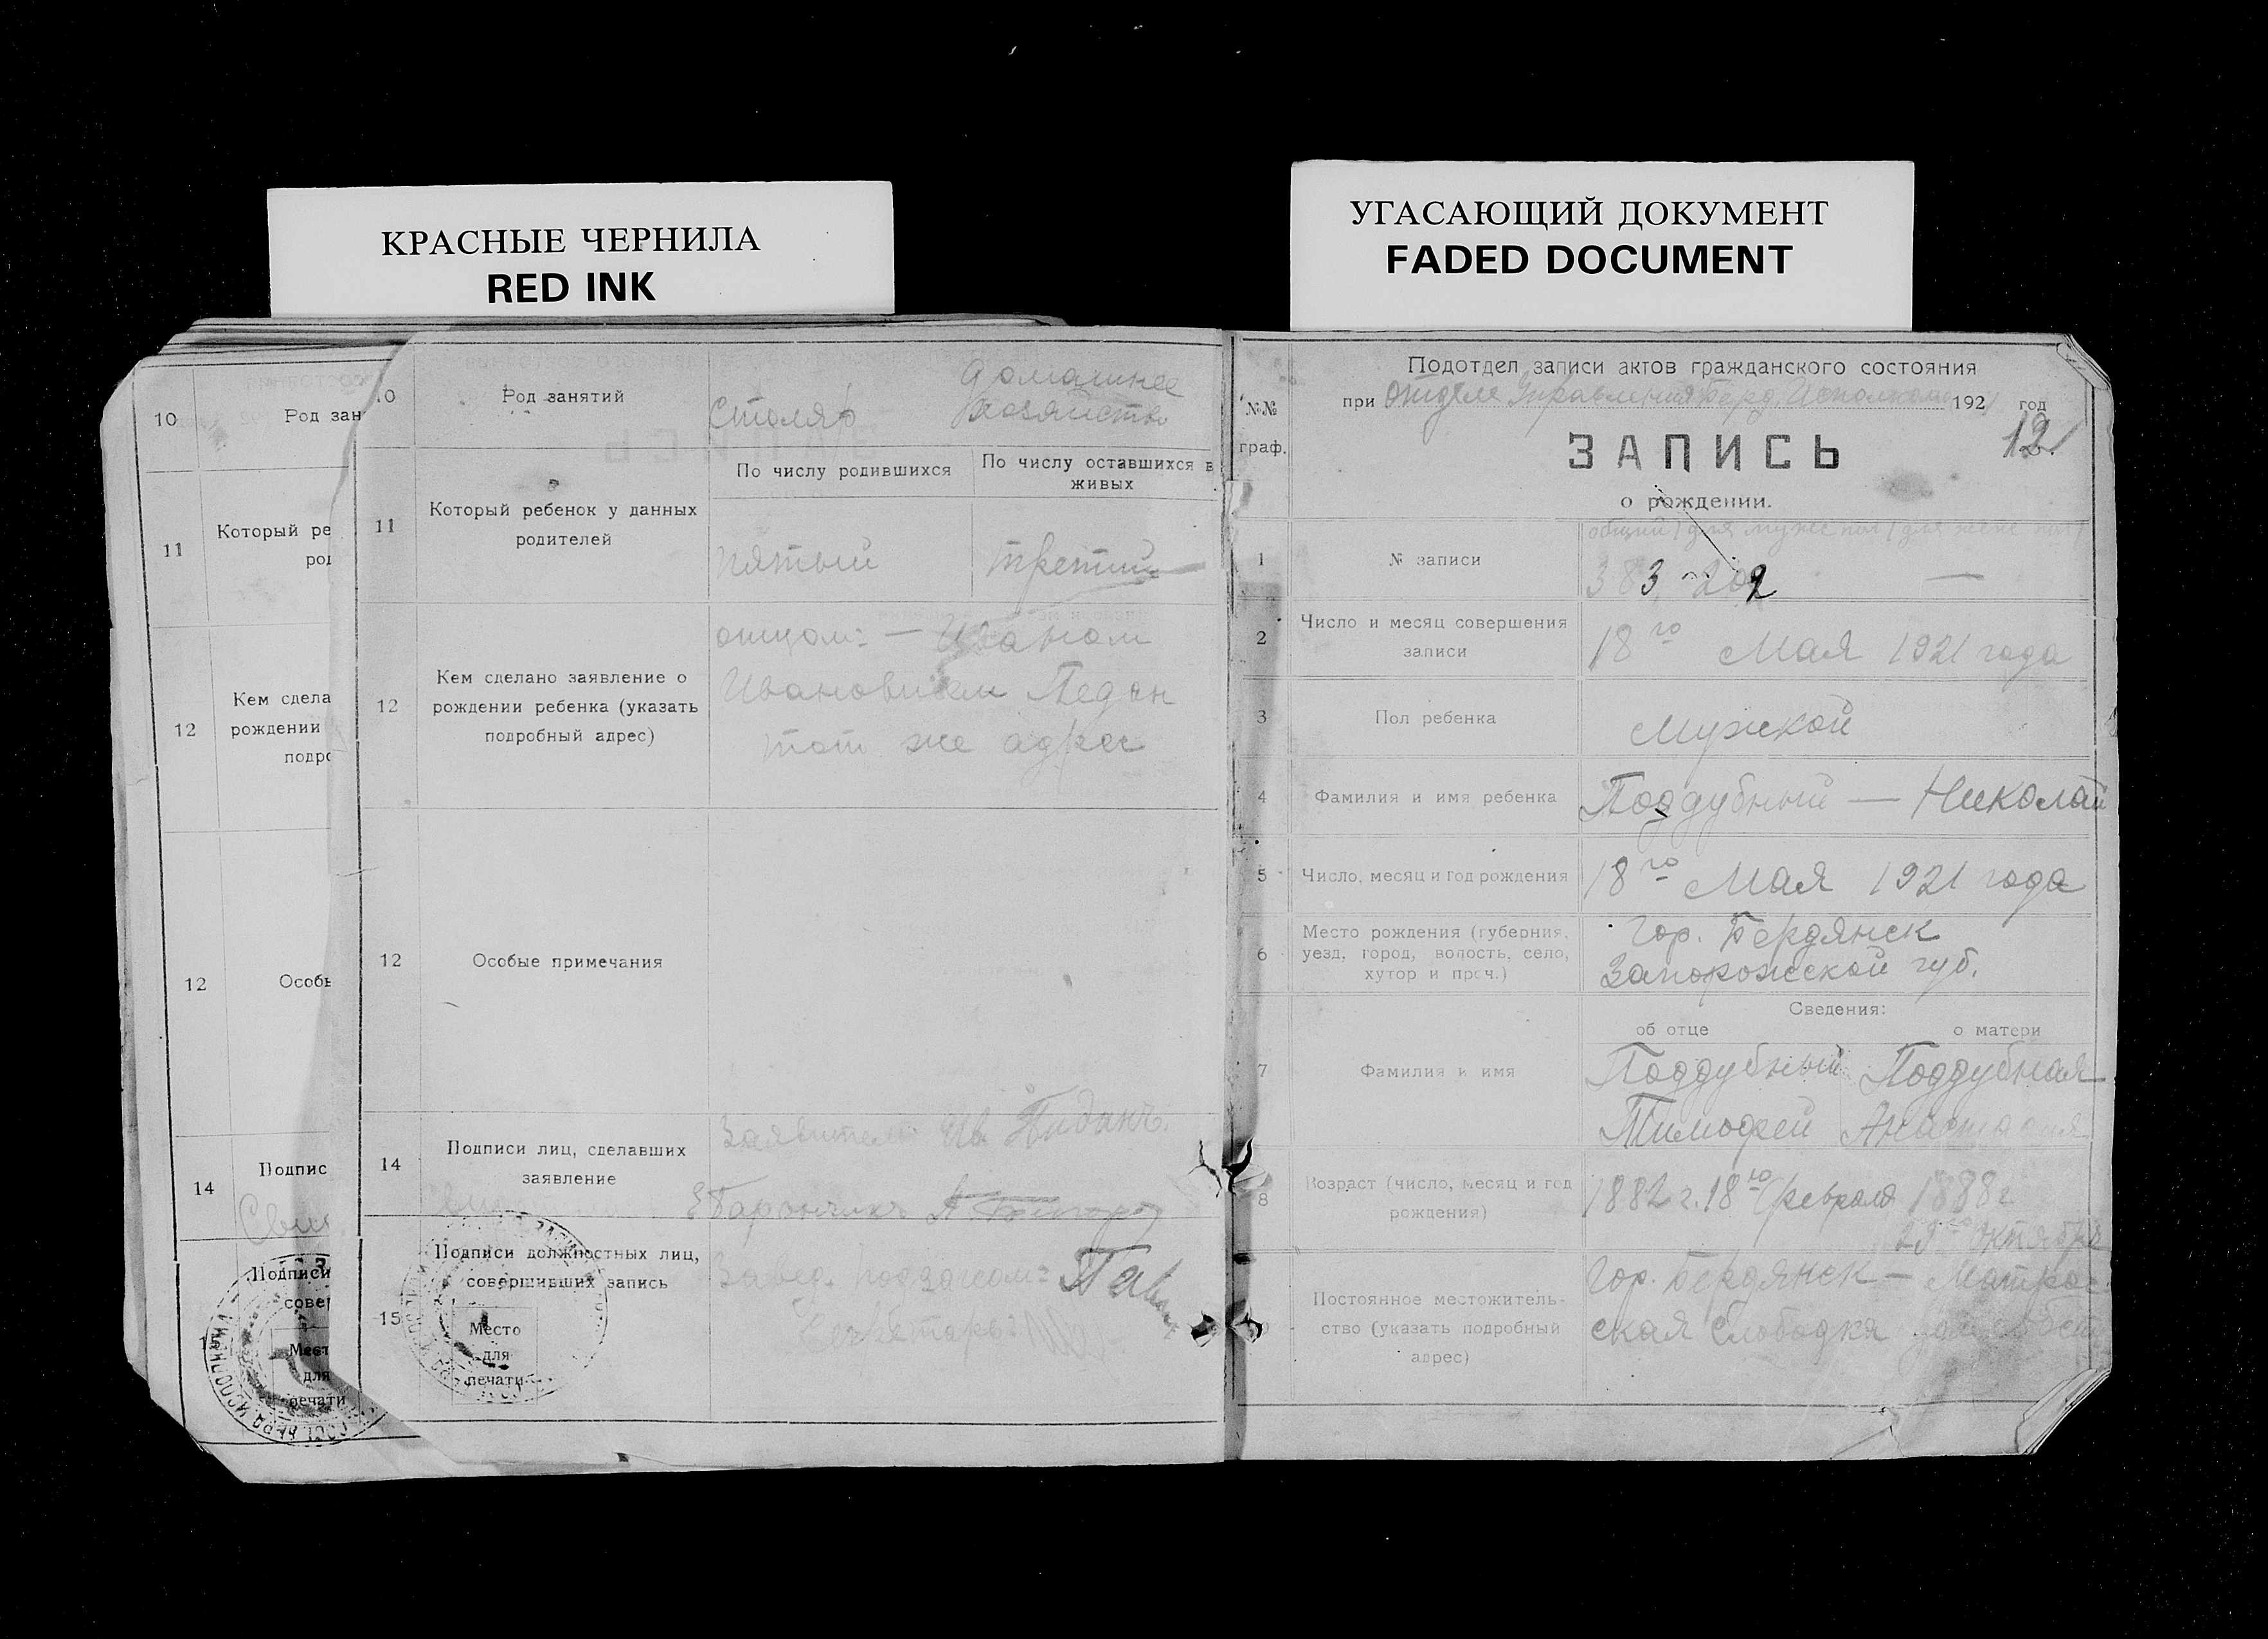 КРАСНЫЕ ЧЕРНИЛА
RED INK
УГАСАЮЩИЙ ДОКУМЕНТ
FADED DOCUMENT
10
Род зан
11
Который ре
род
12
Кем сдела
рождении
подро
12
Особы
14
Подпис
Подписи
совер
Мест
для
печати
10
Род занятий
Столяр
Домашнее
хозяйство
11
Который ребенок у данных
родителей
По числу родившихся
По числу оставшихся в
живых
пятый
третий
12
Кем сделано заявление о
рождении ребенка (указать
подробный адрес)
отцом: — Иваном
Ивановичем Педан
тот же адрес
12
Особые примечания
14
Подписи лиц, сделавших
заявление
Заявитель: Ив.
15
Подписи должностных лиц,
совершивших запись
Место
для
печати
Завед. подзагсом:
Секретарь:
№№
граф.
Подотдел записи актов гражданского состояния
при Отделе Управления Берд. Исполкома 192 год
12
ЗАПИСЬ
о рождении.
1
№ записи
общий / для мужс пол / для женс пол /
383 — 202 —
2
Число и месяц совершения
записи
18го Мая 1921 года
3
Пол ребенка
Мужской
4
Фамилия и имя ребенка
Поддубный — Николай
5
Число, месяц и год рождения
18го Мая 1921 года
6
Место рождения (губерния,
уезд, город, волость, село,
хутор и проч.)
Гор. Бердянск
Запорожской губ.
Сведения:
об отце
о матери
7
Фамилия и имя
Поддубный
Тимофей
Поддубная
Анастасия
8
Возраст (число, месяц и год
рождения)
1882 г. 18го февраля
1888 г.
октября
9
Постоянное местожитель-
ство (указать подробный
адрес)
Гор. Бердянск — Матрос-
ская Слободка